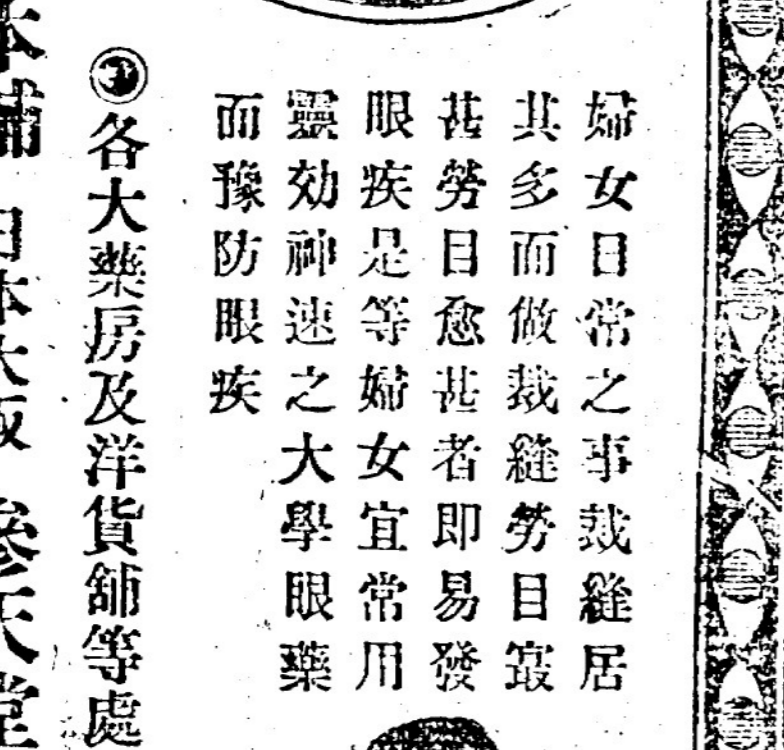 婦女日常之事裁縫居
其多而做裁縫勞目寂
甚勞目愈甚者即易發
眼疾是等婦女宜常用
靈効神速之大學眼藥
而豫防眼疾
各大藥房及洋貨舖等處
本舖 日本大阪 參天堂